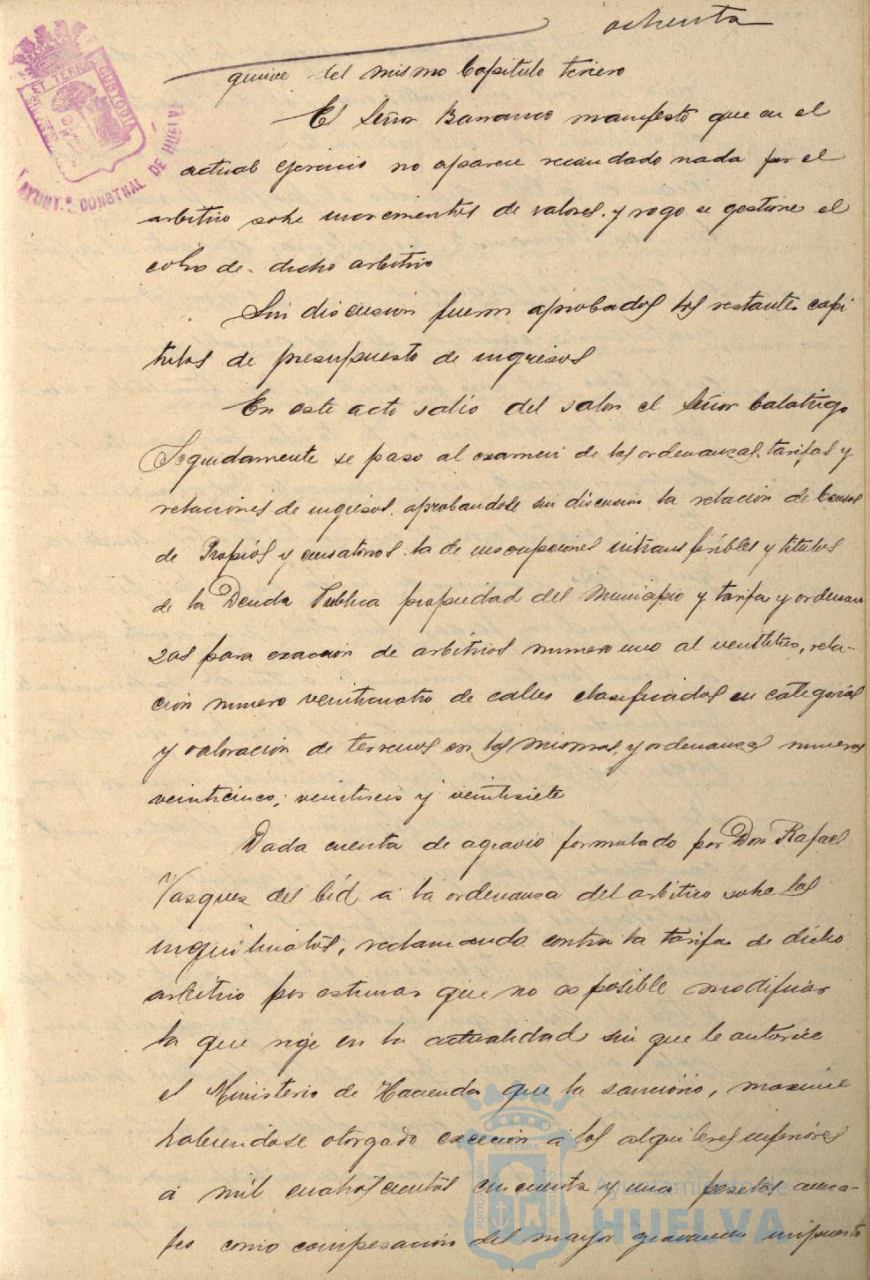 ochenta
quince del mismo Capitulo tercero
El Señor Barranco manifesto que en el
actual ejercicio no aparece recaudado nada por el
arbitrio sobre incrementos de valores y rogo se gestione el
cobro de dicho arbitrio
Sin discusion fueron aprobados los restantes capi
tulos de presupuesto de ingresos
En este acto salio del salon el Señor Calatrigo
Seguidamente se paso al examen de las ordenanzas, tarifas y
relaciones de ingresos, aprobandose sin discusion la relación de Censos
de Propios y censatarios, la de inscripciones intransferibles y titulos
de la Deuda Publica propiedad del Municipio y tarifa y ordenan
zas para exaccion de arbitrios numero uno al veintitres, rela-
ción numero veinticuatro de calles clasificadas en categorias
y valoracion de terrenos en las mismas, y ordenanzas numeros
veinticinco, veintiseis y veintisiete
Dada cuenta de agravio formulado por Don Rafael
Vasquez del Cid a la ordenanza del arbitrio sobre los
inquilinatos, reclamando contra la tarifa de dicho
arbitrio por estimar que no es posible modificar
la que rige en la actualidad sin que le autorice
el Ministerio de Hacienda que la sanciono, maxime
habiendose otorgado exención a los alquileres inferiores
a mil cuatrocientas cincuenta y una pesetas anua-
les como compesación del mayor gravamen impuesto
AYUNT.º CONSTNAL DE HUELVA
Ayuntamiento de
HUELVA